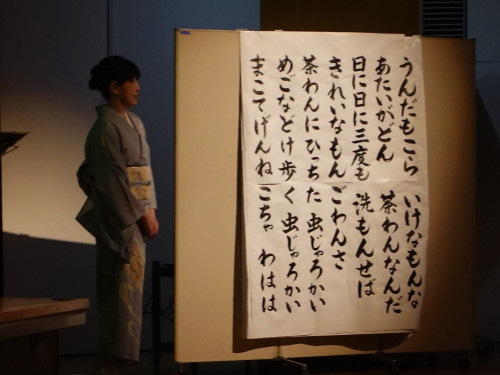 うんだもこら いけなもんな
あたいがどん 茶わんなんだ
日に日に三度も 洗もんせば
きれいなもん ごわんさ
茶わんにひっちた 虫じゃろかい
めごなどけ歩く 虫じゃろかい
まこてげんねこちゃ わはは